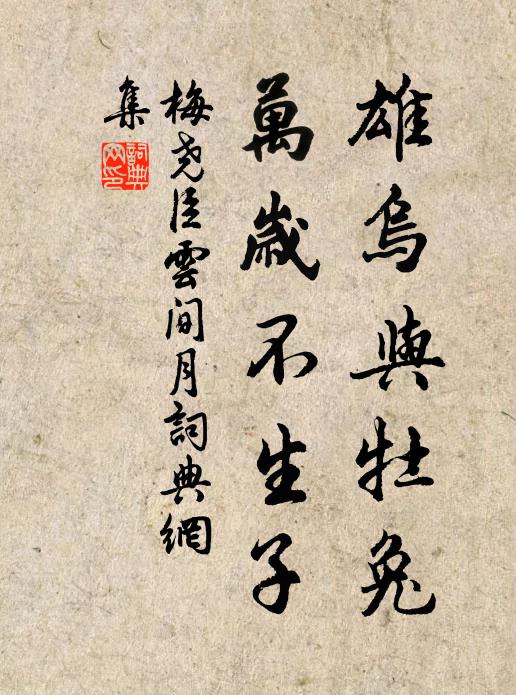 雄烏與牡兔
萬歲不生子
梅尧臣雲間月詞典網
集
詞典
网印